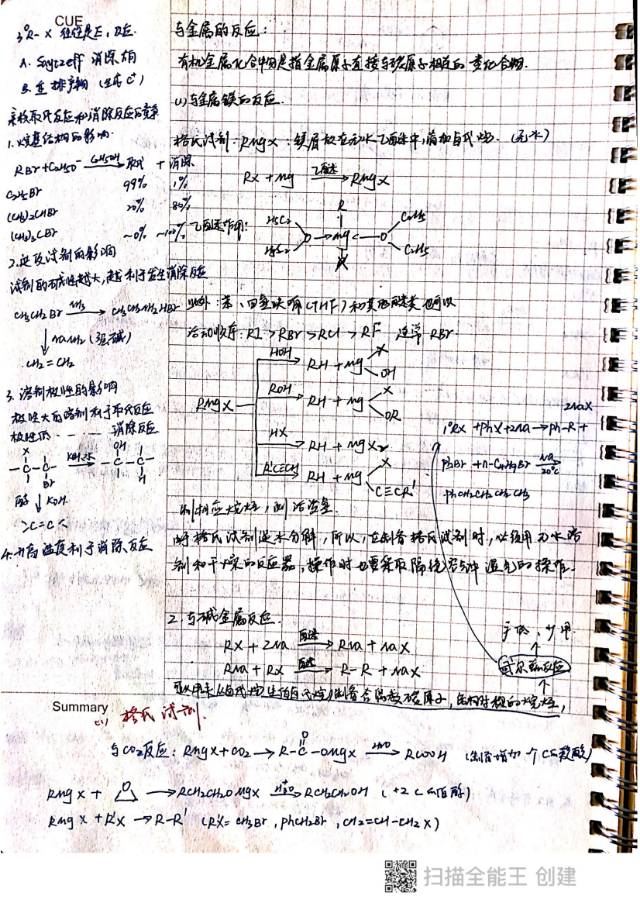 CUE
3°R-X 往往是E,反应
A. Saytzeff 消除相
B. 重排产物 (生成C⁺)
亲核取代反应和消除反应的竞争
1. 烃基结构的影响
RBr+C₂H₅O⁻ C₂H₅OH 取代 + 消除
C₂H₅Br 99% 1%
(CH₃)₂CHBr 20% 80%
(CH₃)₃CBr ~0% ~100%
2. 进攻试剂的影响
试剂的碱性越大,越利于发生消除反应
NaNH₂ (强碱)
CH₂=CH₂
3. 溶剂极性的影响
极性大的溶剂利于取代反应
极性低 消除反应
X OH
-C-C- KOH·水 -C-C-
Br H
醇 KOH
>C=C<
4. 升高温度利于消除反应
与金属的反应:
有机金属化合物是指金属原子直接与碳原子相连的一类化合物.
(1)与金属镁的反应.
格氏试剂:RMgX:镁屑放在无水乙醚中,滴加卤代烃. (无水)
RX+Mg 乙醚→ RMgX
乙醚作用:
R
H5C2 C2H5
O→Mg←O
H5C2 C2H5
X
此外:苯、四氢呋喃(THF)和其他醚类也可以
活动顺序:RI>RBr>RCl>RF 通常RBr
RMgX
HOH RH+Mg X OH
ROH RH+Mg X OR
HX RH+MgX₂
R'C≡CH RH+Mg X C≡CR'
2NaX
1°RX+PhX+2Na→Ph-R+
PhBr+n-C₄H₉Br Na 20℃
PhCH₂CH₂CH₂CH₃
制相应烷烃,测活泼氢
由于格氏试剂遇水分解,所以,在制备格氏试剂时,必须用无水溶
剂和干燥的反应器,操作时也要采取隔绝空气中湿气的操作.
2. 与碱金属反应.
RX+2Na 醚→ RNa+NaX
RNa+RX 醚→ R-R+NaX
产低、少用
武尔兹反应
可以用来从卤代烷(伯卤代烷)制备含偶数碳原子,结构对称的烷烃,
Summary
(1) 格氏试剂.
与CO₂反应:RMgX+CO₂→R-C(=O)-OMgX H₂O→RCOOH (制备增加一个C的羧酸)
RMgX+ O →RCH₂CH₂OMgX H⁺ H₂O→RCH₂CH₂OH (+2 C 伯醇)
RMgX+R'X→R-R' (R'X=CH₃Br,PhCH₂Br,CH₂=CH-CH₂X)
扫描全能王 创建